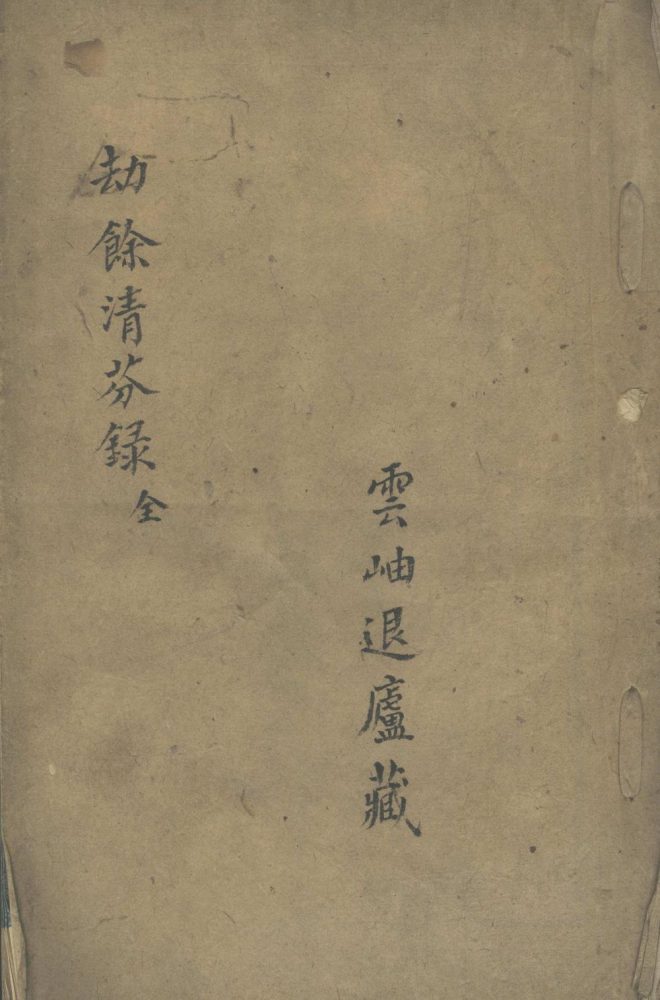 雲岫退廬藏
劫餘清芬録 全